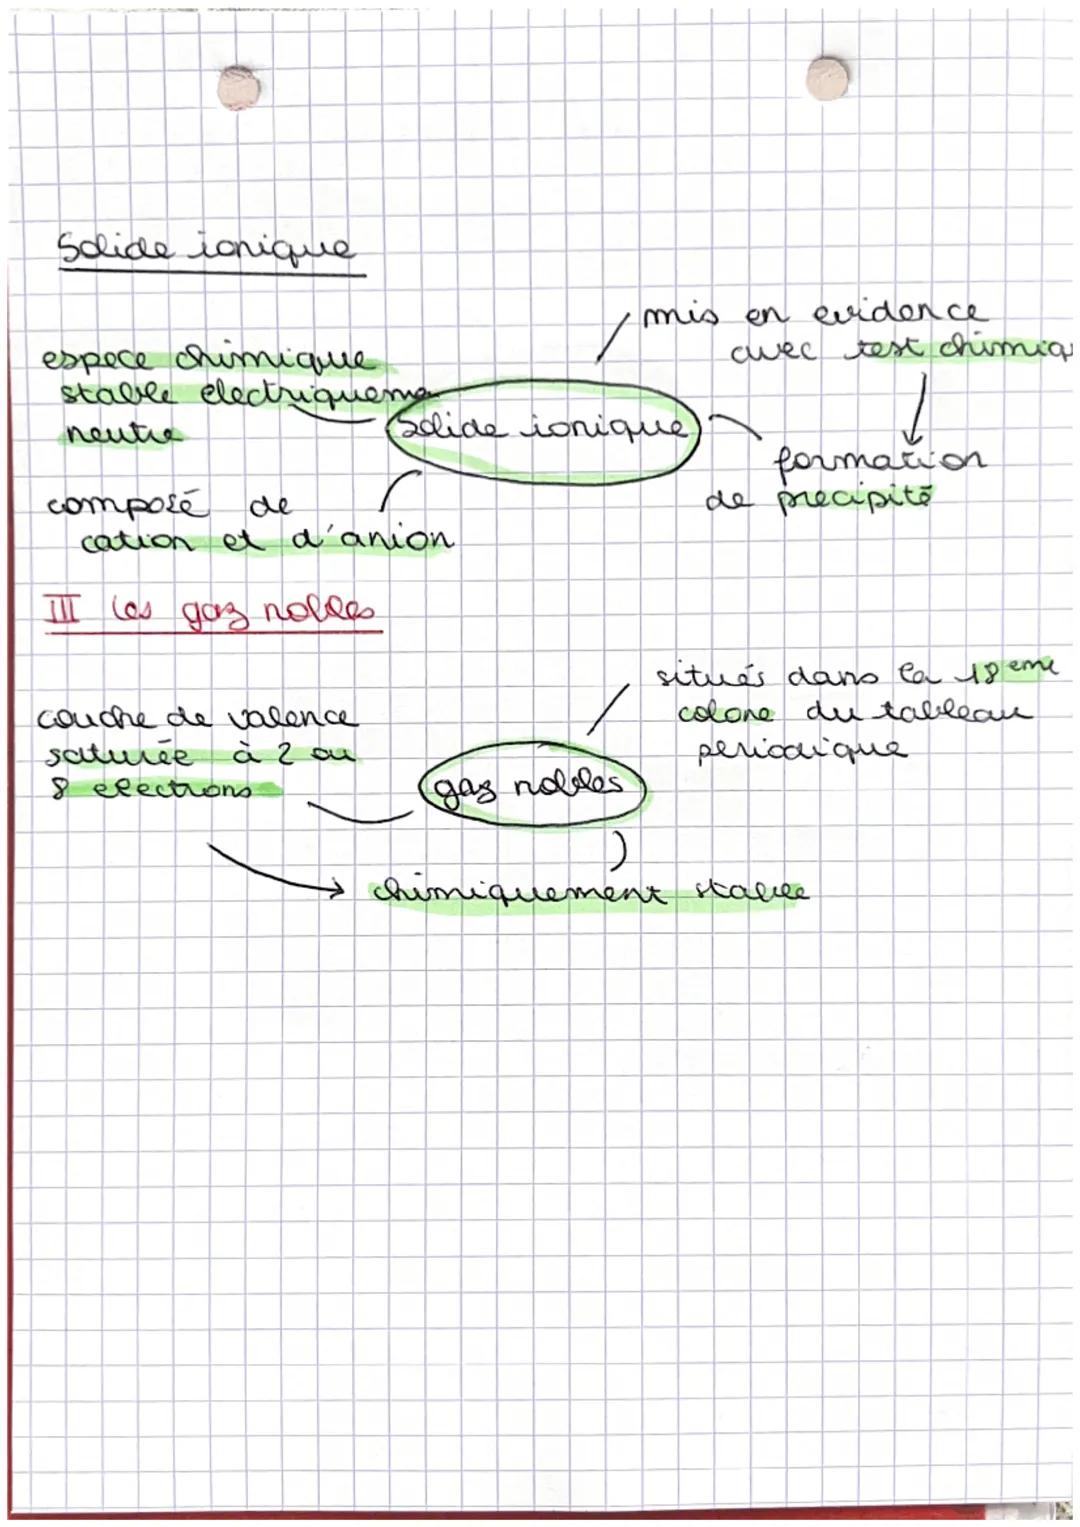 Solide ionique
espece chimique
stable electriqueme
neutre
composé de
cation et d'anion
Solide ionique
mis en evidence
avec test chimiq
formation
de precipité
III les gaz nobles
couche de valence
saturée à 2 ou
8 electrons
gaz nobles
situés dans la 18 eme
colone du tableau
periodique
chimiquement stable